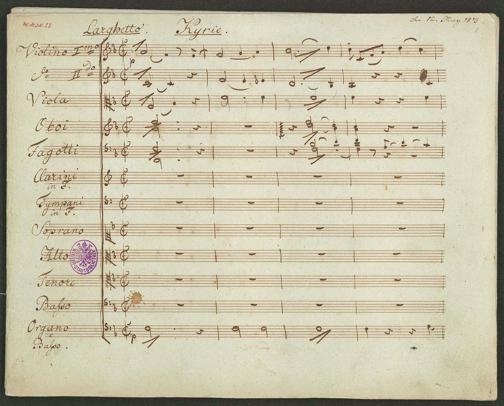 Larghetto. Kyrie.
Violino I.mo
II.do
Viola
Oboi
Fagotti
Clarini
in F.
Tympani
in F.
Soprano
Alto
Tenore
Basso
Organo
Basso.